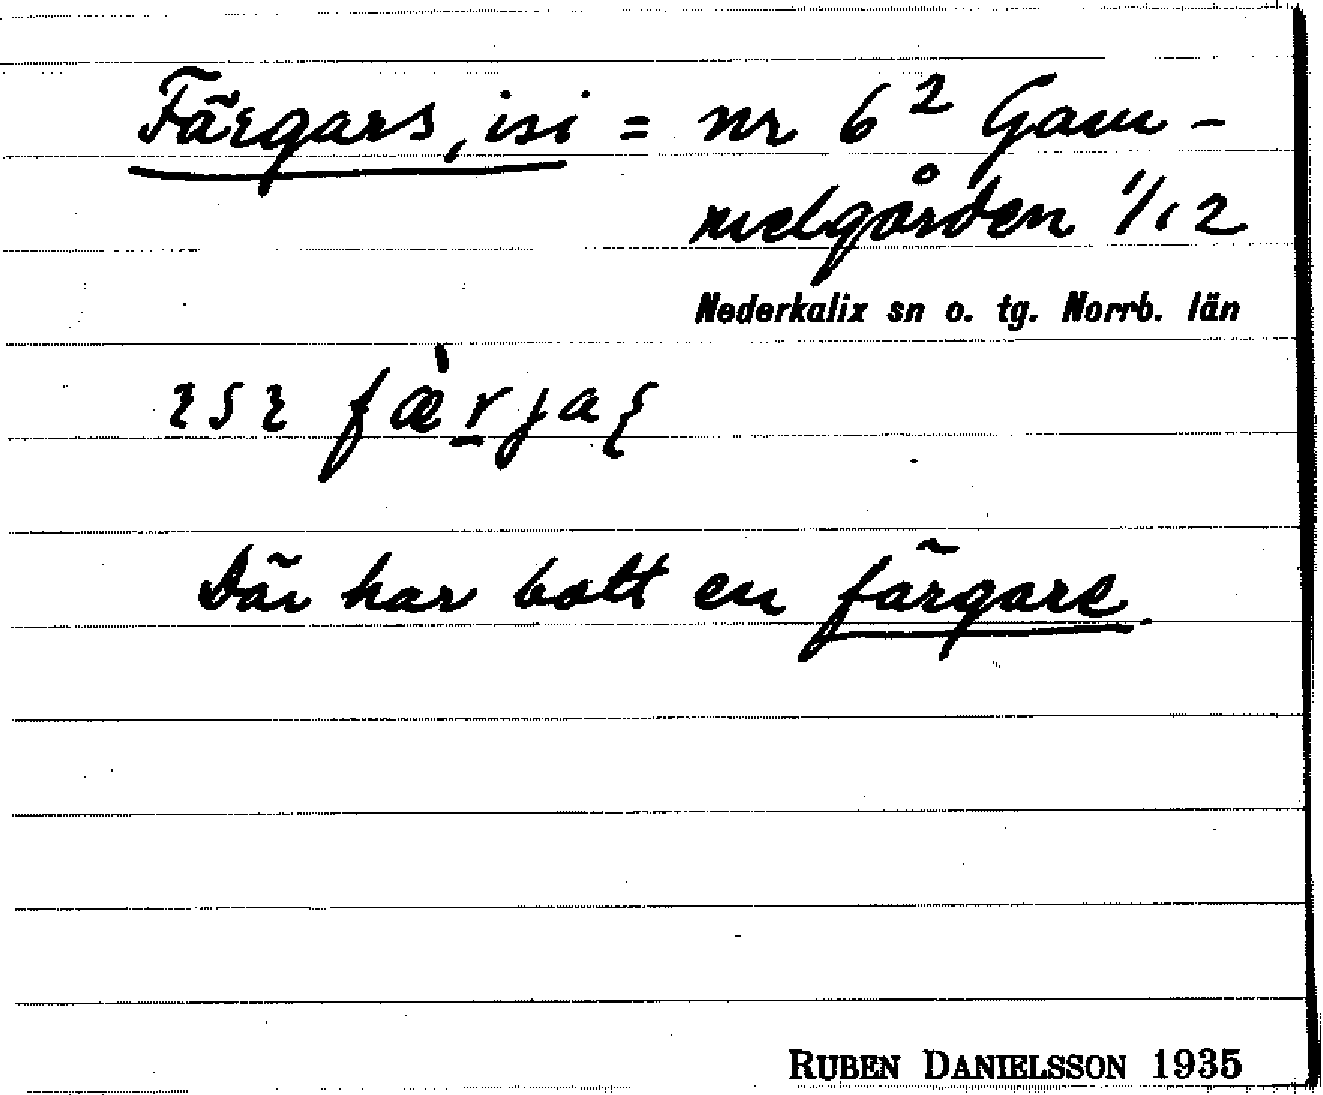 Färgars, isi = nr 6² Gam-
melgården 1/12
Nederkalix sn o. tg. Norrb. län
Där har bott en färgare
RUBEN DANIELSSON 1935